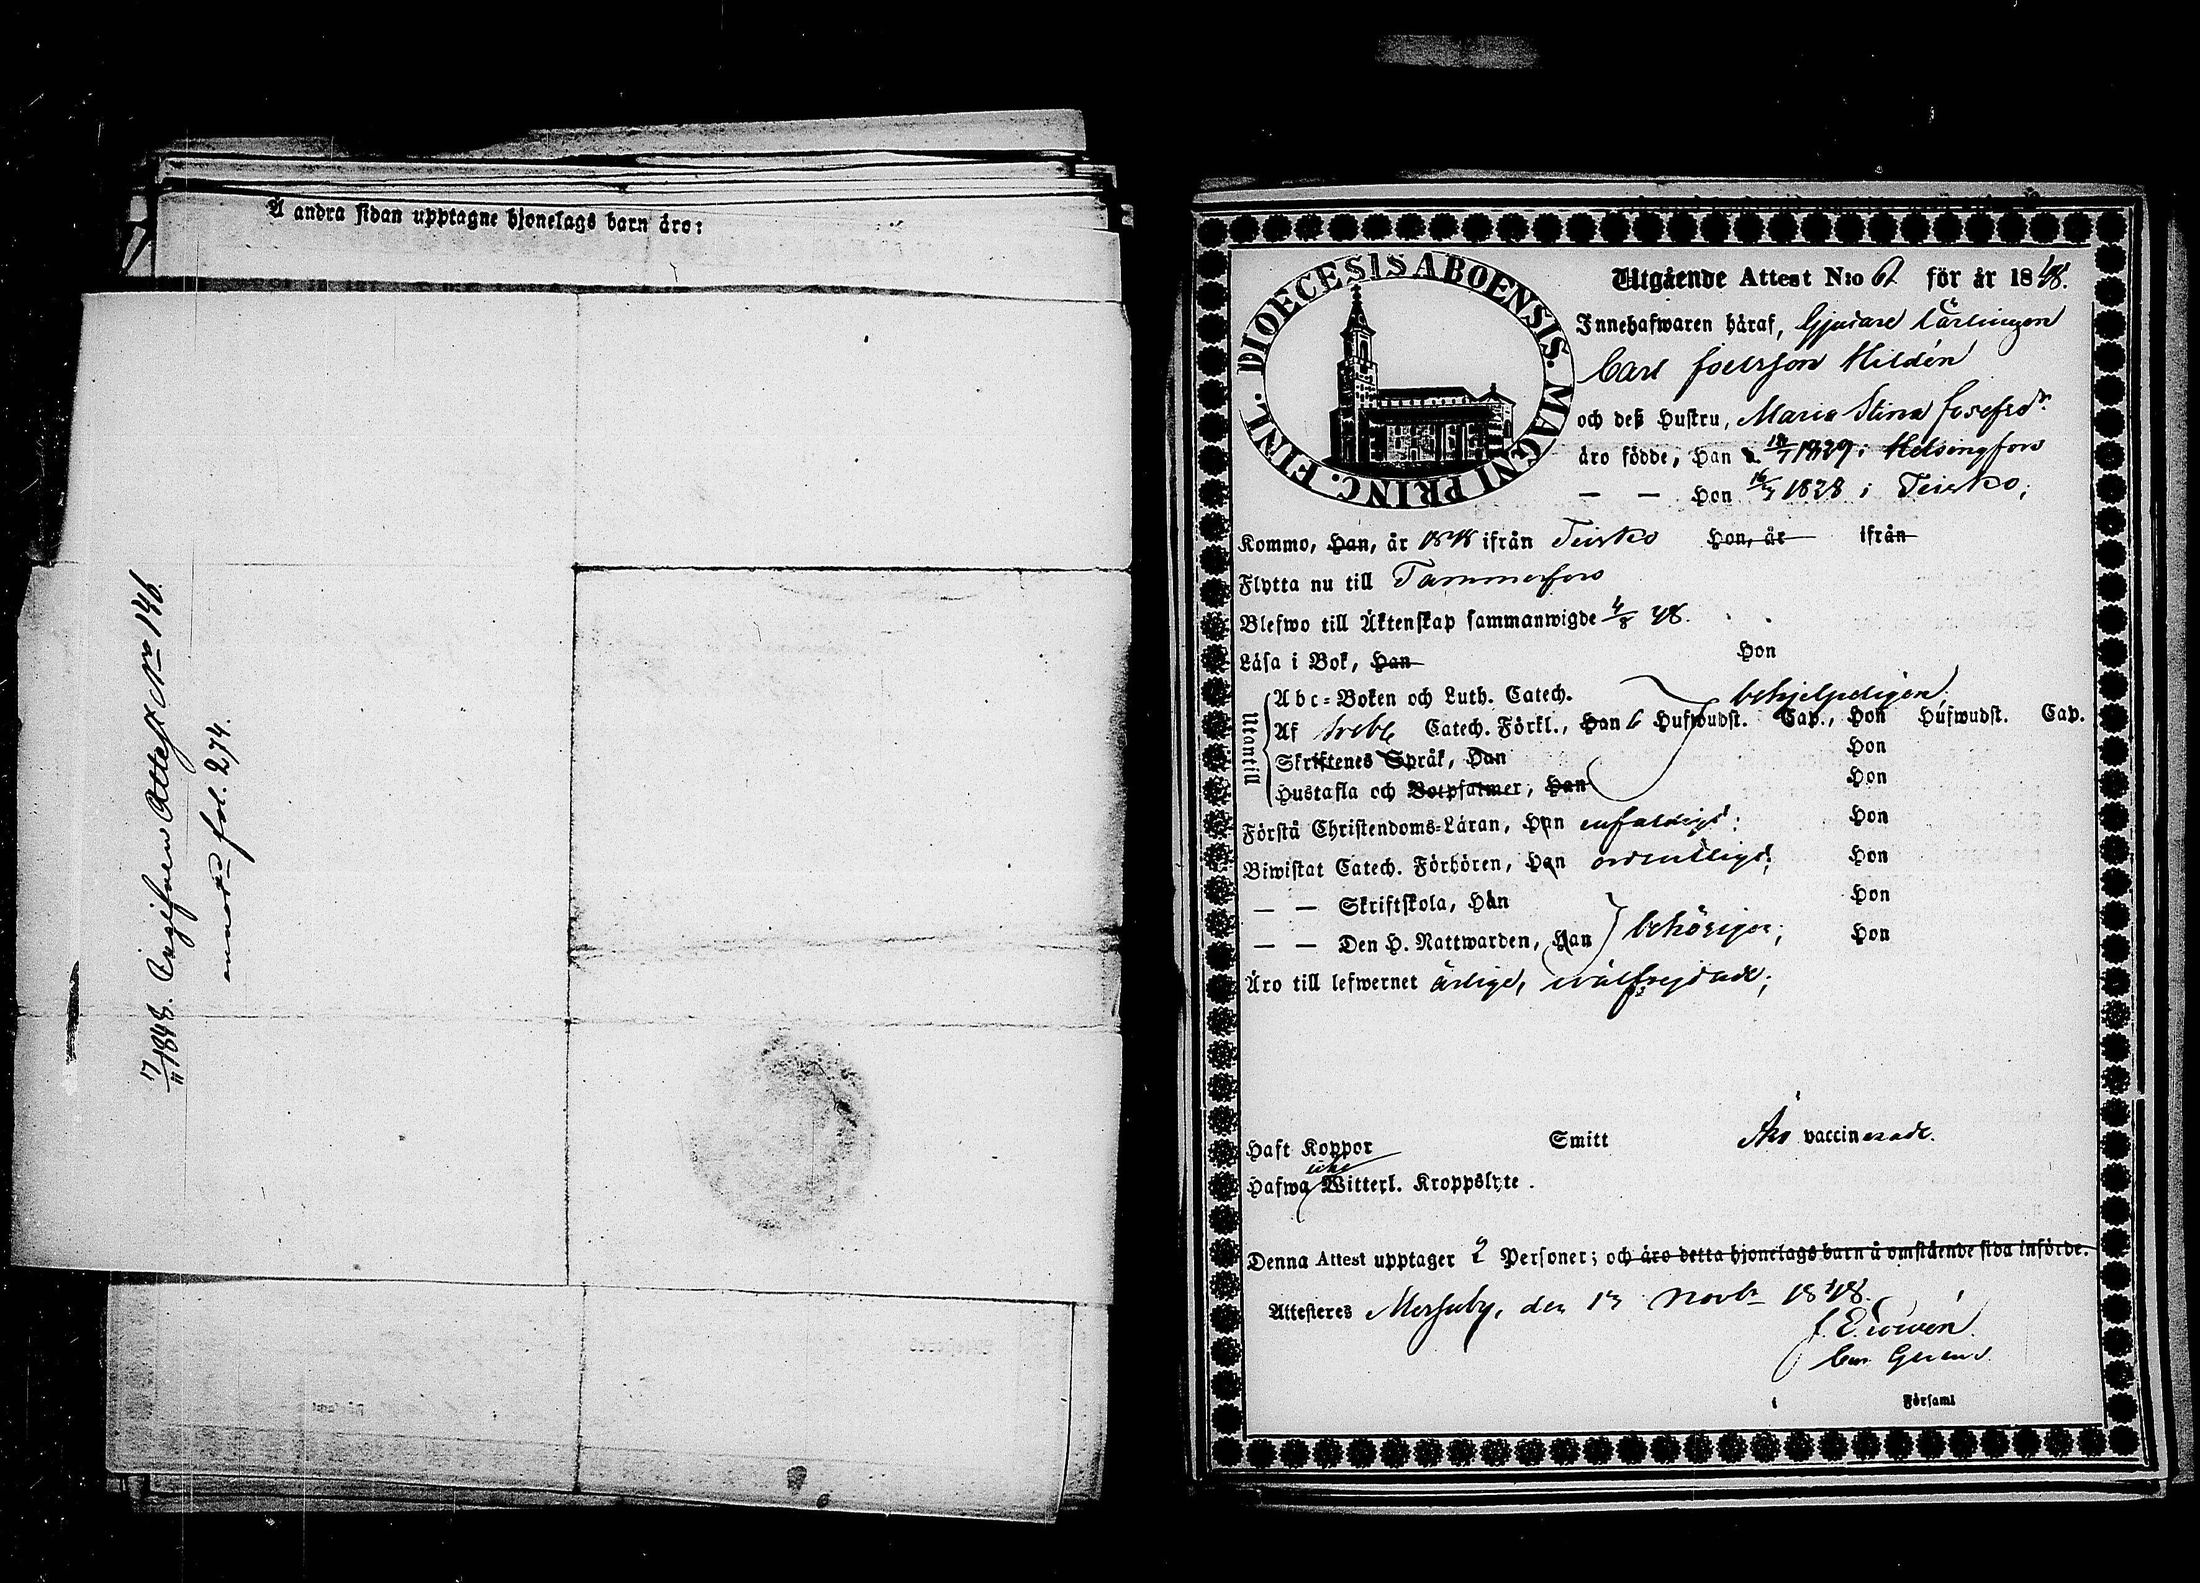 Å andra sidan upptagne hjonelags barn äro:
7/11 1848. Ingifven Attest No 146.
fol. 274.
DIOECESIS ABOENSIS. MAGNI PRINC. FINL.
Utgående Attest N:o 62 för år 1848.
Innehafwaren häraf, Gjutare Lärlingen
Carl Hildén
och deß Hustru, Maria Stina Josefsdr.
äro födde, Han d. 1829 i Helsingfors
— — Hon 1828 i Teisko,
Kommo, Han, år 1848 ifrån Teisko Hon, år ifrån
Flytta nu till Tammerfors
Blefwo till Äktenskap sammanwigde 4/8 48.
Läsa i Bok, Han Hon
Utantill
Abc-Boken och Luth. Catech. behjelpeligen
Af Catech. Förkl., Han 6 Hufwudst. Cap., Hon Hufwudst. Cap.
Skriftenes Språk, Han Hon
Hustafla och Botpsalmer, Han Hon
Förstå Christendoms-Läran, Han enfaldigt; Hon
Biwistat Catech. Förhören, Han ordentligt; Hon
— — Skriftskola, Han Hon
— — Den H. Nattwarden, Han behörigen; Hon
Äro till lefwernet ärlige, wälfrejdade;
Haft Koppor Smitt Äro vaccinerade.
icke
Hafwa Witterl. Kroppslyte.
Denna Attest upptager 2 Personer; och äro detta hjonelags barn å omstående sida införde.
Attesteras Messuby, den 13 Novbr 1848.
Församl